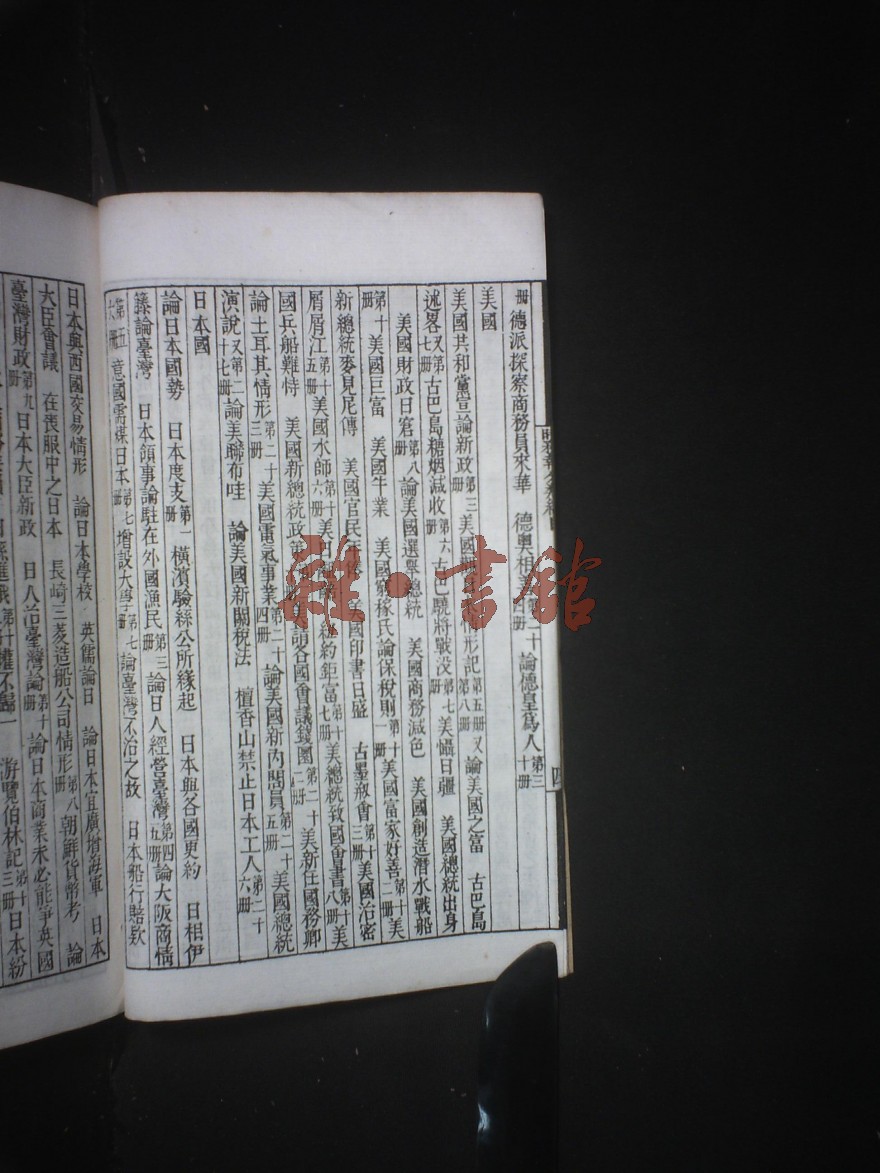 册 德派探察商務員來華 德奧相 二十 册 論德皇爲人 第三十册
美國
美國共和黨宣論新政 第三册 美國 情形記 第五册又第八册 論美國之富 古巴島
述畧 又七册 古巴島糖烟減收 第六册 古巴驍將戰没 第七册 美懾日疆 美國總統出身
美國財政日窘 第八册 論美國選舉總統 美國商務減色 美國創造潛水戰船
第十册 美國巨富 美國牛業 美國 稼氏論保稅則 第十一册 美國富家好善 第十二册 美
新總統麥見尼傳 美國官民 美國印書日盛 古墨淑會 第十三册 美國治密
屑屑江 第十五册 美國水師 第十六册 美日 紐約鉅富 第十七册 美總統致國會書 第十八册 美
國兵船難恃 美國新總統政 請各國會議錢圜 第二十二册 美新任國務卿
論土耳其情形 第二十三册 美國電氣事業 第二十四册 論美國新內閣員 第二十五册 美國總統
演說 又第二十七册 論美聯布哇 論美國新關稅法 檀香山禁止日本工人 第二十六册
日本國
論日本國勢 日本度支 第一册 橫濱驗絲公所緣起 日本與各國更約 日相伊
藤論臺灣 日本領事論駐在外國漁民 第三册 論日人經營臺灣 第四五册 論大阪商情
第五六册 意國需煤日本 第七册 增設大學 第七册 論臺灣不治之故 日本船行賠欵
日本與西國交易情形 論日本學校 英儒論日 論日本宜廣增海軍 日本
大臣會議 在喪服中之日本 長崎三菱造船公司情形 第八册 朝鮮貨幣考 論
臺灣財政 第九册 日本大臣新政 日人治臺灣論 第十册 論日本商業未必能爭英國
游覽伯林記 第十三册 日本紛
四